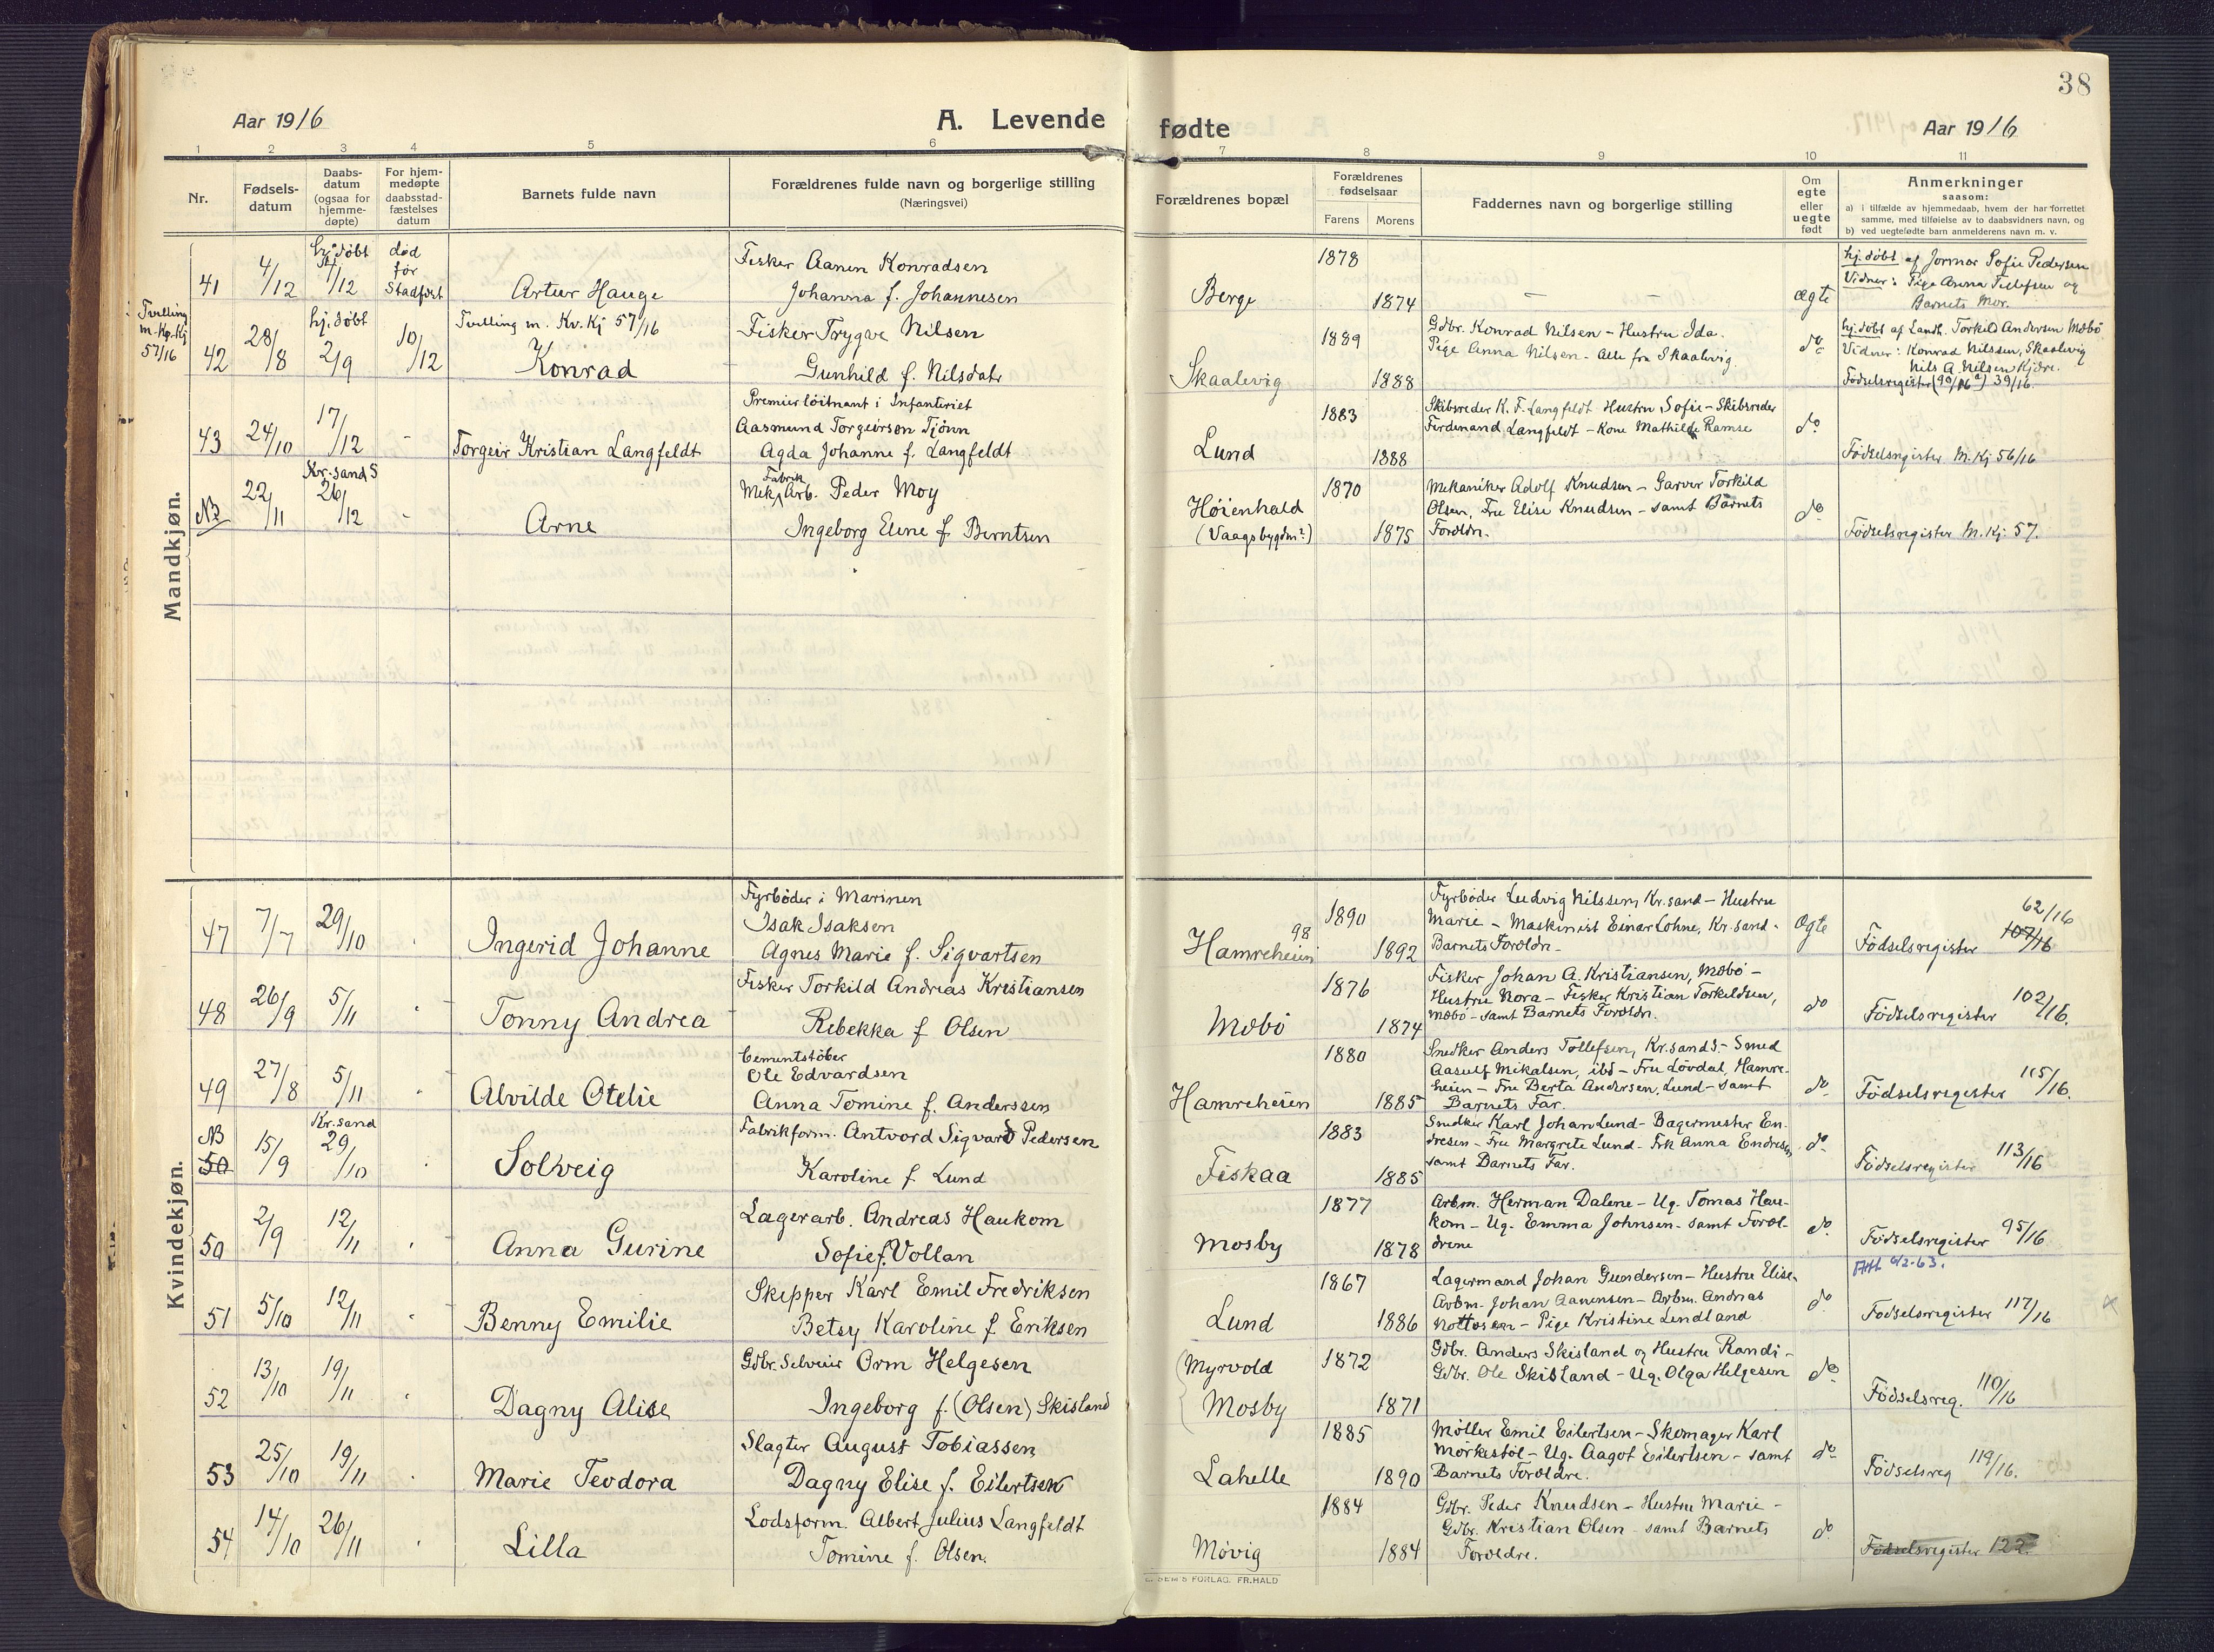 38
Aar 1916
A. Levende fødte
Aar 1916
1 2 3 4 5 6 7 8 9 10 11
Nr.
Fødsels-
datum
Daabs-
datum
(ogsaa for
hjemme-
døpte)
For hjem-
medøpte
daabsstad-
fæstelses
datum
Barnets fulde navn
Forældrenes fulde navn og borgerlige stilling
(Næringsvei)
Forældrenes bopæl
Forældrenes
fødselsaar
Farens
Morens
Faddernes navn og borgerlige stilling
Om
egte
eller
uegte
født
Anmerkninger
saasom:
a) i tilfælde av hjemmedaab, hvem der har forrettet
samme, med tilføielse av to daabsvidners navn, og
b) ved uegtefødte barn anmelderens navn m. v.
Mandkjøn.
41
4/12
hj.døbt
4/12
død
før
Stadfæst
Artur Hauge
Fisker Aanen Konradsen
Johanna f. Johannesen
Berge
1878
1874
— —
Ægte
hj.døbt af Jormor Sofie Pedersen
Vidner: Pige Anna Tellefsen og
Barnets Mor.
Tvilling
m. Kv. Kj
57/16
42
28/8
hj.døbt
2/9
10/12
Tvilling m. Kv. Kj 57/16
Konrad
Fisker Trygve Nilsen
Gunhild f. Nilsdatr
Skaalevig
1889
1888
Gdbr. Konrad Nilsen - Hustru Ida.
Pige Anna Nilsen - Alle fra Skaalevig.
do
hj.døbt af Landh. Torkild Andersen Mæbø
Vidner: Konrad Nilssen, Skaalevig
Nils A. Nilsen Kjære.
Fødselsregister (90/16 a) 39/16.
43
24/10
17/12
-
Torgeir Kristian Langfeldt
Premierløitnant i Infanteriet
Aasmund Torgeirson Tjönn
Agda Johanne f. Langfeldt
Lund
1883
1888
Skibsreder K. F. Langfeldt Hustru Sofie - Skibsreder
Ferdinand Langfeldt - Kone Mathilde Ramse
do
Fødselsregister M. Kj 56/16
NB
22/11
Kr.sand S
26/12
-
Arne
Fabrik
Mek. Arb. Peder Moy
Ingeborg Elene f. Berntsen
Høienhald
(Vaagsbygdn?)
1870
1875
Mekaniker Adolf Knudsen - Garver Torkild
Olsen, Fru Elise Knudsen - samt Barnets
Foreldr.
do
Fødselsregister M. Kj. 57.
Kvindekjøn.
47
7/7
29/10
Ingerid Johanne
Fyrbøder i Marinen
Isak Isaksen
Agnes Marie f. Sigvartsen
98
Hamreheien
1890
1892
Fyrbøder Ludvig Nilssen, Kr.sand - Hustru
Marie - Maskinist Einar Lohne, Kr.sand -
Barnets Foreldr -
Ægte
Fødselsregister 107/16 62/16
48
26/9
5/11
Tonny Andrea
Fisker Torkild Andreas Kristiansen
Rebekka f. Olsen
Mæbø
1876
1874
Fisker Johan A. Kristiansen, Mæbø -
Hustru Nora - Fisker Kristian Torkildsen,
Mæbø - samt Barnets Foreldr.
do
Fødselsregister 102/16.
49
27/8
5/11
Alvilde Otelie
Cementstøber
Ole Edvardsen
Anna Tomine f. Anderssen
Hamreheien
1880
1885
Snedker Anders Tollefsen, Kr.sand S. - Smed
Aasulf Mikalsen, ibd - Fru Løvdal, Hamre-
heien - Fru Berta Andersen, Lund - samt
Barnets Far.
do
Fødselsregister 115/16.
NB
50
15/9
Kr.sand
29/10
Solveig
Fabrikform. Antvord Sigvard Pedersen
Karoline f. Lund
Fiskaa
1883
1885
Snedker Karl Johan Lund - Bagermester En-
dresen - Fru Margrete Lund - Frk Anna Endresen
samt Barnets Far.
do
Fødselsregister 113/16
50
2/9
12/11
Anna Gurine
Lagerarb. Andreas Haukom
Sofie f. Vollan
Mosby
1877
1878
Arbm. Herman Dalene - Ug. Tomas Hau-
kom - Ug. Emma Johnsen - samt Foræl-
drene
do
Fødselsregister 95/16
Att 6/2-63.
51
5/10
12/11
Benny Emilie
Skipper Karl Emil Fredriksen
Betsy Karoline f. Eriksen
Lund
1867
1886
Lagermand Johan Gundersen - Hustru Elise -
Arbm. Johan Aanensen - Arbm. Andreas
- Pige Kristine Lendland
do
Fødselsregister 117/16
52
13/10
19/11
Dagny Alise
Gdbr. Selveier Orm Helgesen
Ingeborg f. (Olsen) Skisland
(Myrvold
Mosby
1872
1871
Gdbr. Anders Skisland og Hustru Randi -
Gdbr. Ole Skisland - Ug. Olga Helgesen
do
Fødselsreg. 110/16
53
25/10
19/11
Marie Teodora
Slagter August Tobiassen
Dagny Elise f. Eilertsen
Lahelle
1885
1890
Møller Emil Eilertsen - Skomager Karl
Mørkestøl - Ug. Aagot Eilertsen - samt
Barnets Foreldre.
do
Fødselsreg 119/16.
54
14/10
26/11
Lilla
Lodsform. Albert Julius Langfeldt
Tomine f. Olsen.
Møvig
1884
1884
Gdbr. Peder Knudsen - Hustru Marie -
Gdbr. Kristian Olsen - samt Barnets
Foreldre.
do
Fødselsregister 122.
FORLAG. FR.HALD